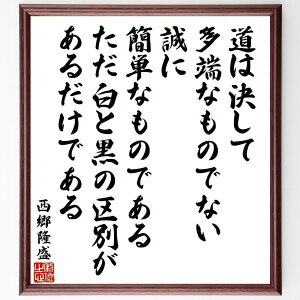 道は決して
多端なものでない
誠に
簡単なものである
ただ白と黒の区別が
あるだけである
西郷隆盛